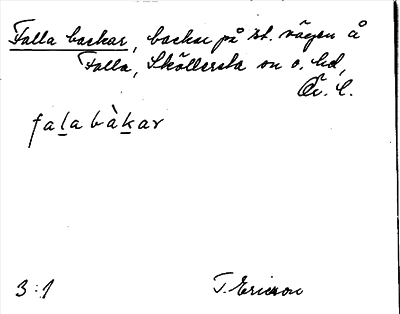 Falla backar, backar på st. vägen å
Falla, Sköllersta sn o. hd,
Ör. l.
falabàkar
3:1
T. Ericson